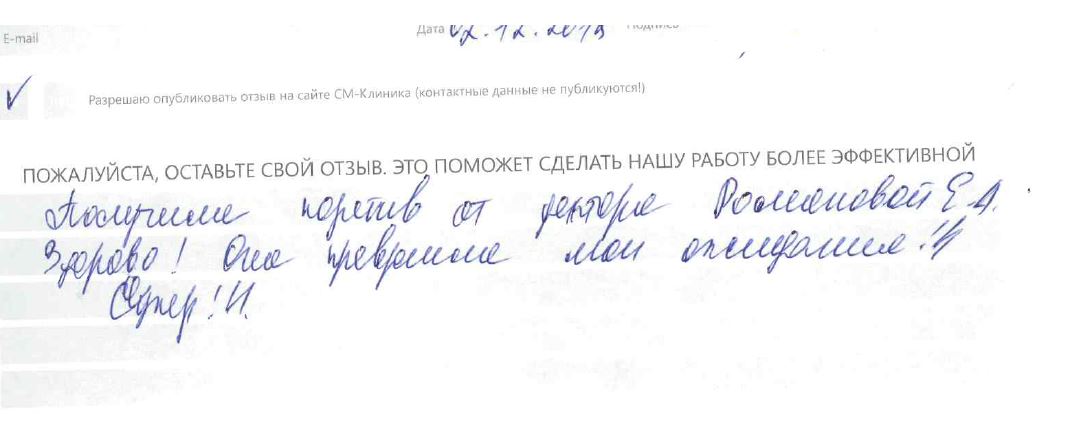 E-mail
Дата 02.12.2019 Подпись
Разрешаю опубликовать отзыв на сайте СМ-Клиника (контактные данные не публикуются!)
ПОЖАЛУЙСТА, ОСТАВЬТЕ СВОЙ ОТЗЫВ. ЭТО ПОМОЖЕТ СДЕЛАТЬ НАШУ РАБОТУ БОЛЕЕ ЭФФЕКТИВНОЙ
Получила позитив от доктора Романовой Е.А.
Здорово! Она превысила мои ожидания!!!
Супер!!!